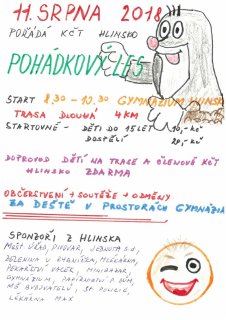 11. SRPNA 2018
POŘÁDÁ KČT HLINSKO
POHÁDKOVÝ LES
START 8.30 - 10.30 GYMNÁZIUM HLINSKO
TRASA DLOUHÁ 4KM
STARTOVNÉ - DĚTI DO 15LET 10,-KČ
DOSPĚLÍ 20,-KČ
DOPROVOD DĚTÍ NA TRASE A ČLENOVÉ KČT
HLINSKO ZDARMA
OBČERSTVENÍ + SOUTĚŽE + ODMĚNY
ZA DEŠTĚ V PROSTORÁCH GYMNÁZIA
SPONZOŘI Z HLINSKA
MĚST. ÚŘAD, PIVOVAR, JEDNOTA S.D.,
ZELENINA U RYBNÍČKA, MLÉKÁRNA,
PEKAŘSTVÍ VACEK, MINIBAZAR,
GYMNÁZIUM, PAPÍRNICTVÍ A DŮM,
MĚ BYDOVATELŮ, ST. POLICIE,
LÉKÁRNA MAX